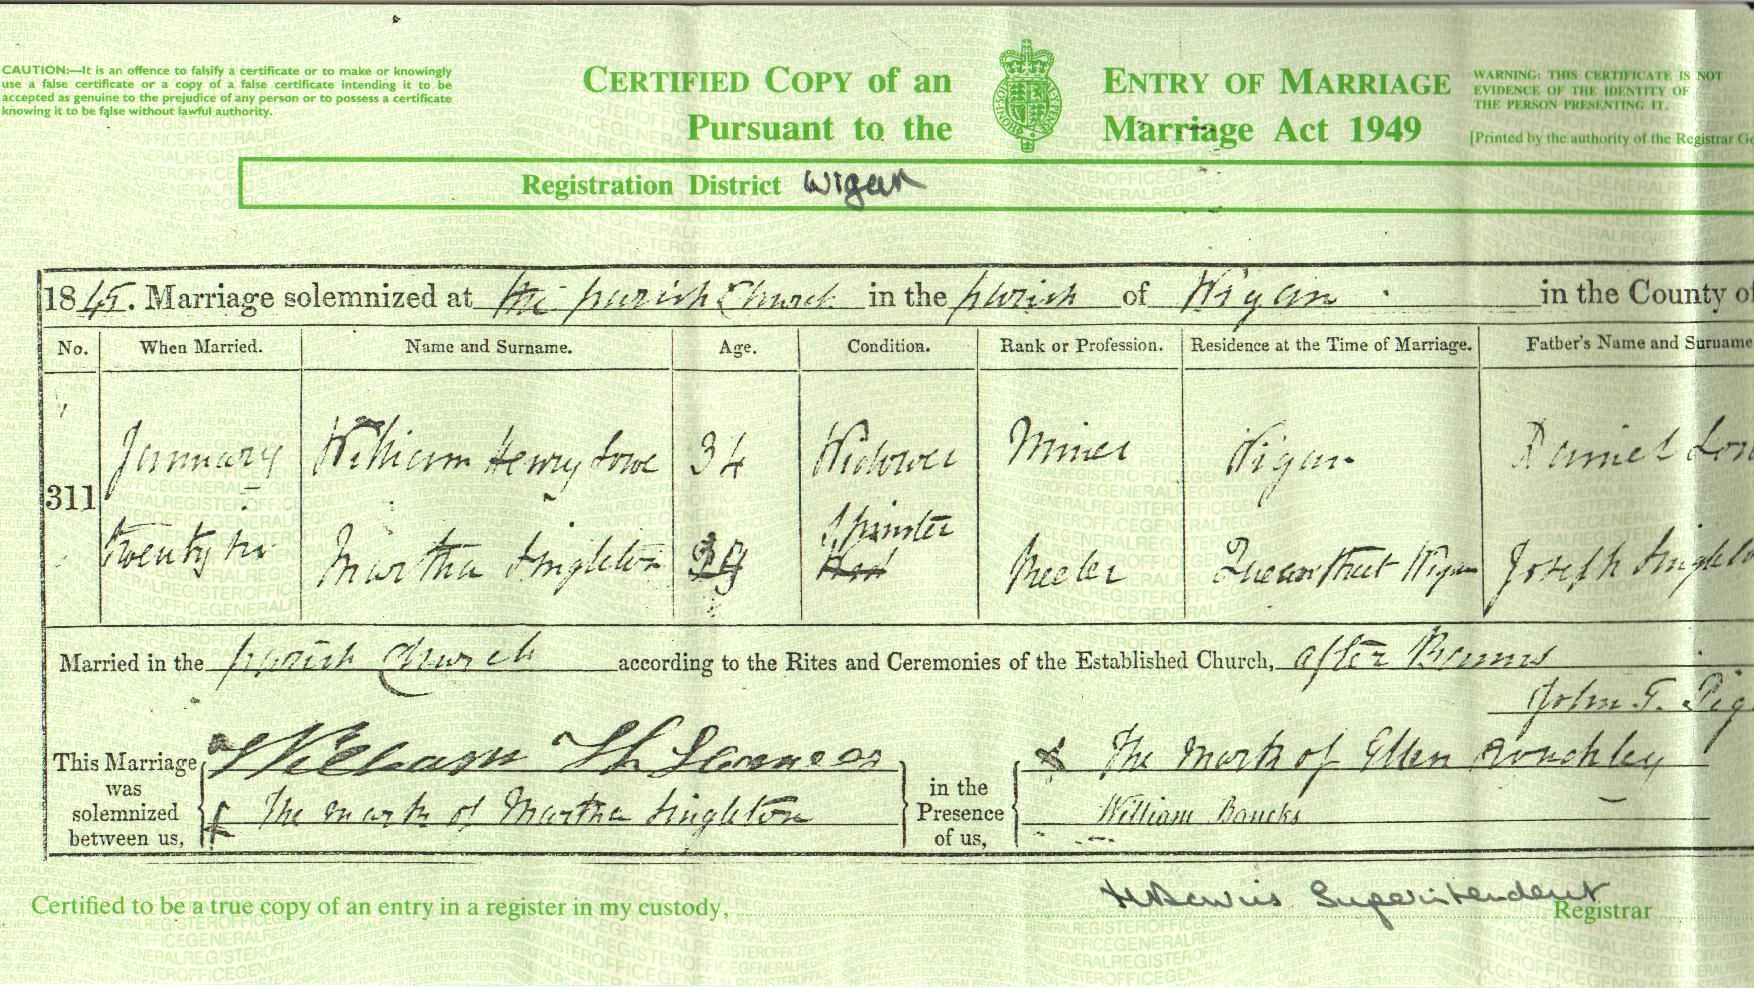 CAUTION:—It is an offence to falsify a certificate or to make or knowingly
use a false certificate or a copy of a false certificate intending it to be
accepted as genuine to the prejudice of any person or to possess a certificate
knowing it to be false without lawful authority.
CERTIFIED COPY of an ENTRY OF MARRIAGE
Pursuant to the Marriage Act 1949
WARNING: THIS CERTIFICATE IS NOT
EVIDENCE OF THE IDENTITY OF
THE PERSON PRESENTING IT.
[Printed by the authority of the Registrar Ge
Registration District Wigan
1845. Marriage solemnized at the parish Church in the parish of Wigan in the County of
No. When Married. Name and Surname. Age. Condition. Rank or Profession. Residence at the Time of Marriage. Father's Name and Surname
January William Henry Lowe 34 Widower Miner Wigan Daniel
311
Spinster
twenty six Martha Singleton Reeler Queen Street Wigan Joseph Singleto
Married in the parish Church according to the Rites and Ceremonies of the Established Church, after Banns
John T. Pig
This Marriage was solemnized between us, William H
The mark of Martha Singleton
in the Presence of us, The mark of Ellen
William Bancks
Certified to be a true copy of an entry in a register in my custody, Superintendent Registrar